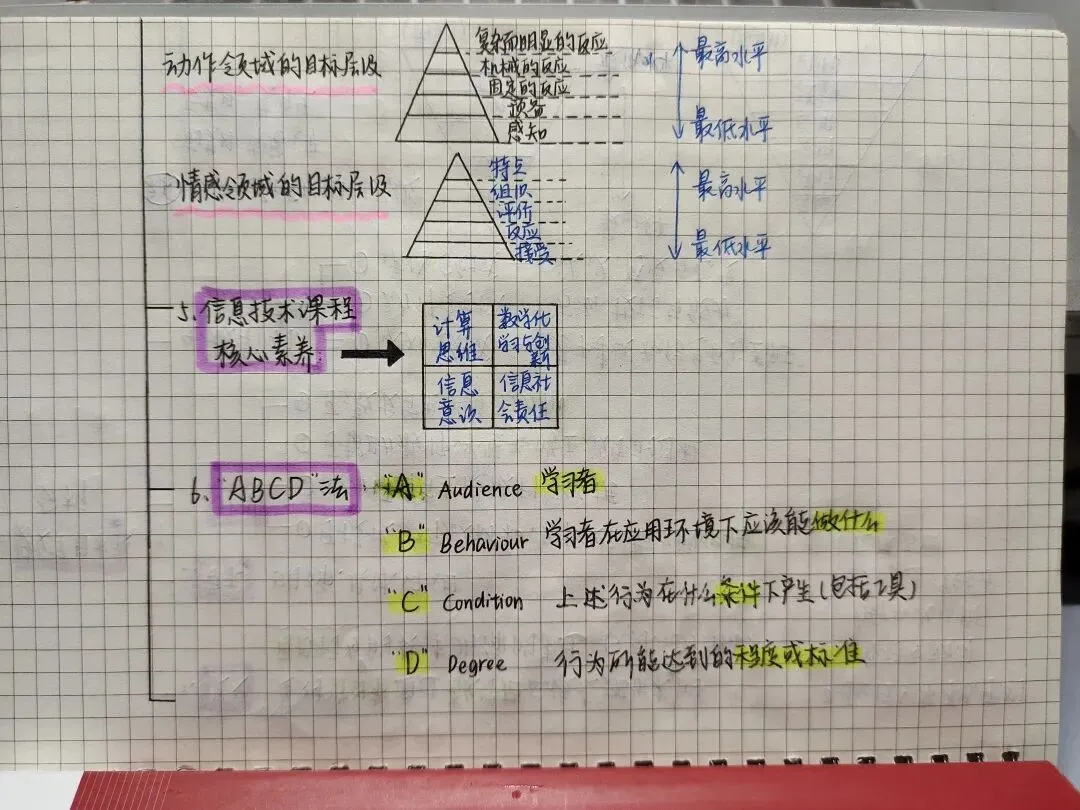 动作领域的目标层级
复杂而明显的反应
机械的反应
固定的反应
预备
感知
最高水平
最低水平
情感领域的目标层级
特点
组织
评价
反应
接受
最高水平
最低水平
5、信息技术课程
核心素养
计算
思维
数字化
学习与创
新
信息
意识
信息社
会责任
6、"ABCD"法
"A" Audience 学习者
"B" Behaviour 学习者在应用环境下应该能做什么
"C" Condition 上述行为在什么条件下产生(包括工具)
"D" Degree 行为所能达到的程度或标准